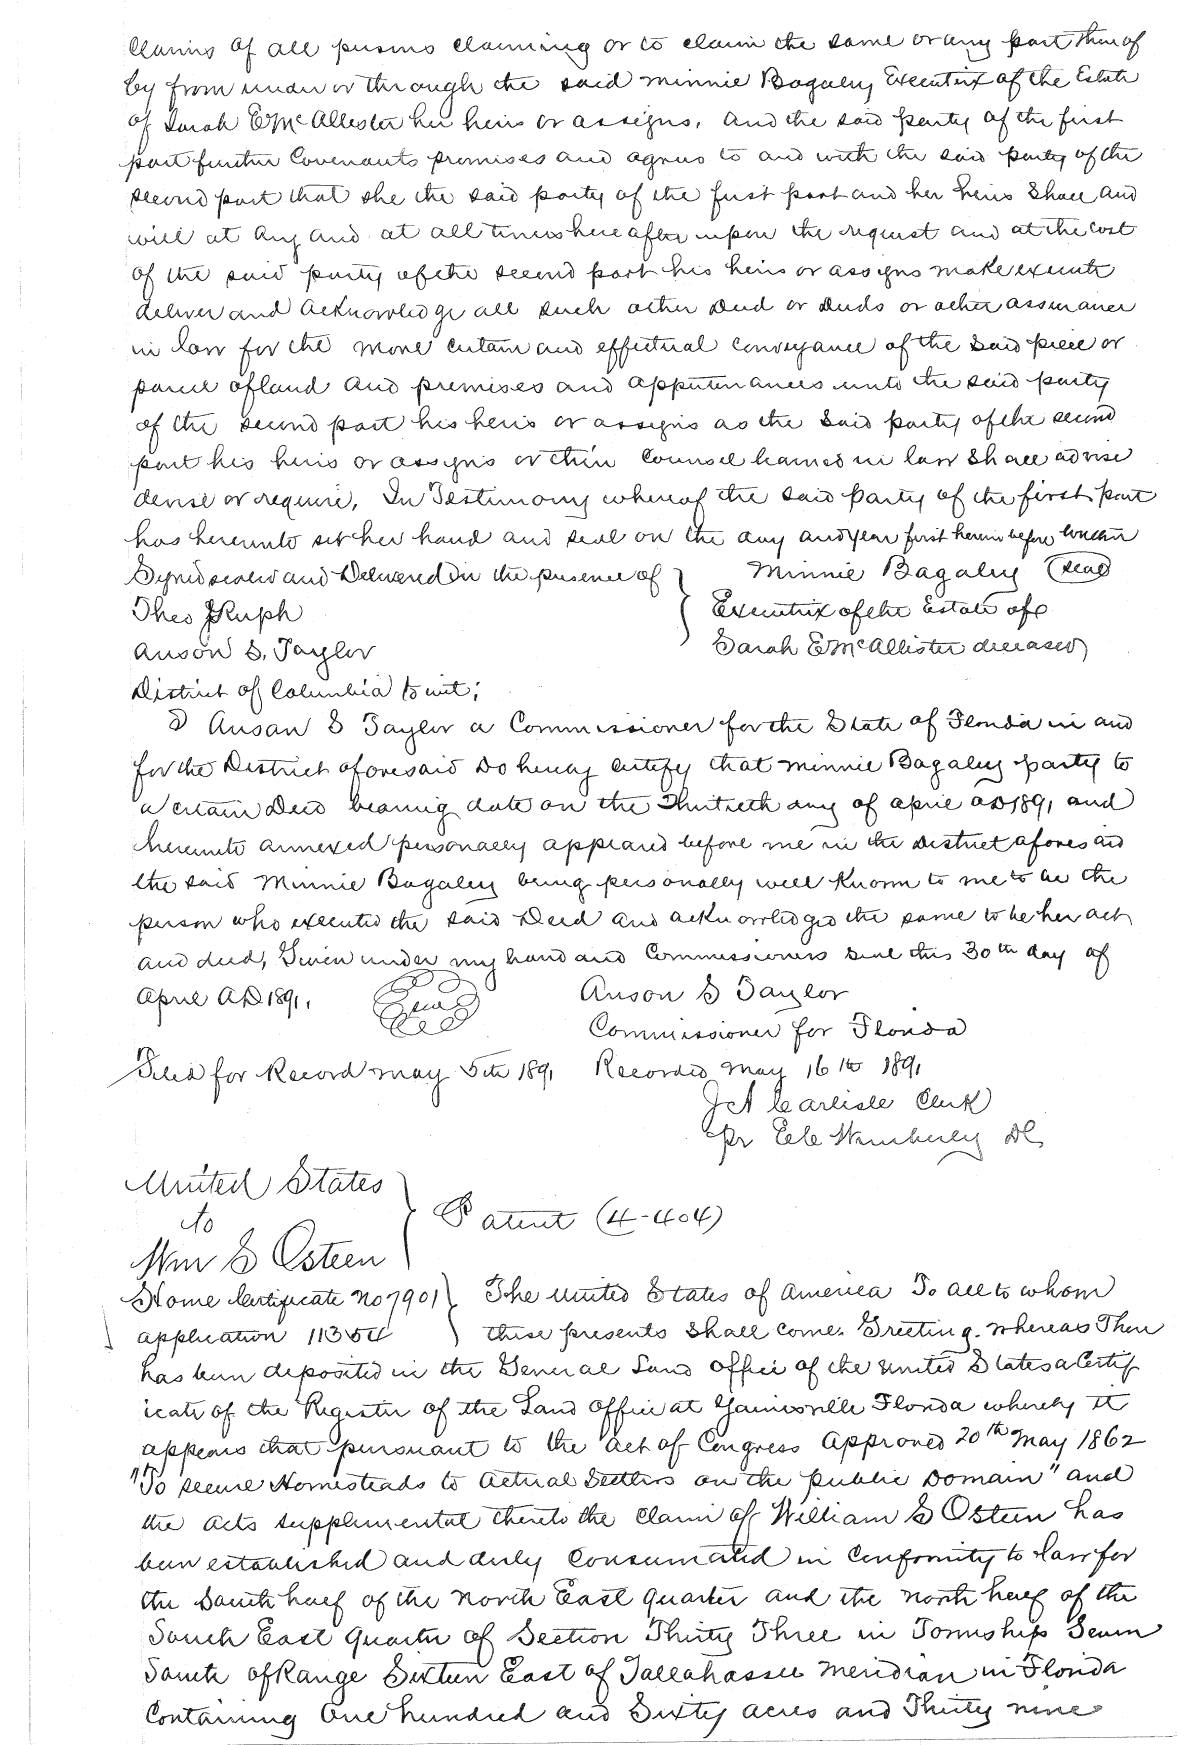 Claims of all persons claiming or to claim the same or any part thereof
by from under or through the said Minnie Bagaley Executrix of the Estate
of Sarah E McAllister her heirs or assigns, and the said party of the first
part further Covenants promises and agrees to and with the said party of the
second part that she the said party of the first part and her heirs shall and
will at any and at all times hereafter upon the request and at the cost
of the said party of the second part his heirs or assigns make execute
deliver and acknowledge all such other Deed or Deeds or other assurance
in law for the more certain and effectual conveyance of the said piece or
parcel of land and premises and appurtenances unto the said party
of the second part his heirs or assigns as the said party of the second
part his heirs or assigns or their Counsel learned in law shall advise
devise or require, In Testimony whereof the said party of the first part
has hereunto set her hand and seal on the day and year first herein before written
Signed sealed and Delivered in the presence of } Minnie Bagaley (seal)
Theo J Ruph Executrix of the Estate of
Anson S. Taylor Sarah E McAllister deceased
District of Columbia to wit;
I Anson S Taylor a Commissioner for the State of Florida in and
for the District aforesaid Do hereby certify that Minnie Bagaley party to
a certain Deed bearing date on the Thirtieth day of April AD 1891 and
hereunto annexed personally appeared before me in the District aforesaid
the said Minnie Bagaley being personally well known to me to be the
person who executed the said Deed and acknowledged the same to be her act
and deed, Given under my hand and Commissioners seal this 30th day of
April AD 1891. Seal Anson S Taylor
Commissioner for Florida
Filed for Record May 5th 1891 Recorded May 16th 1891
J A Carlisle Clerk
pr DC
United States
to } Patent (4-404)
Wm S Osteen
Home Certificate No 7901 } The United States of America To all to whom
application 11354 } these presents shall come. Greeting. Whereas There
has been deposited in the General Land office of the United States a Certif
icate of the Register of the Land Office at Gainesville Florida whereby it
appears that pursuant to the act of Congress Approved 20th May 1862
"To secure Homesteads to Actual Settlers on the public Domain" and
the acts supplemental thereto the claim of William S Osteen has
been established and duly Consumated in Conformity to law for
the South half of the North East Quarter and the north half of the
South East Quarter of Section Thirty Three in Township Seven
South of Range Sixteen East of Tallahassee Meridian in Florida
Containing One hundred and Sixty acres and Thirty nine